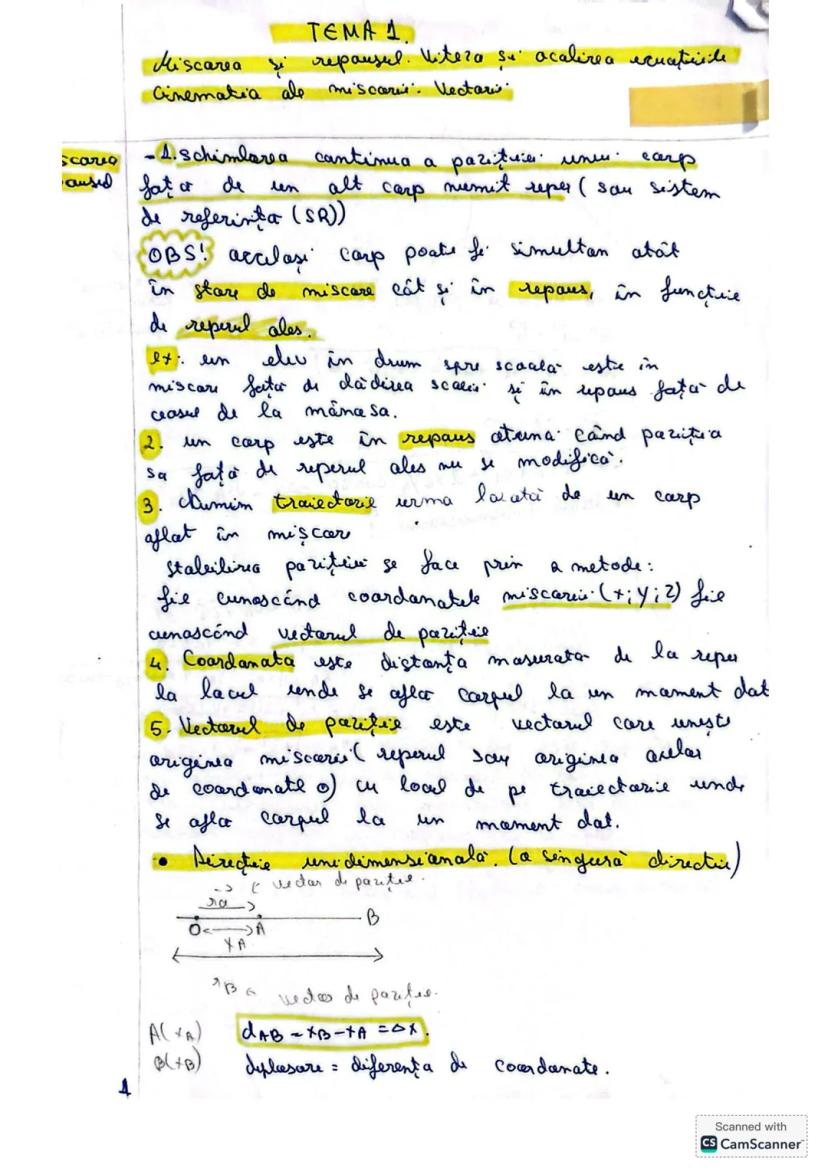 TEMA 1.
Miscarea și repausul. Viteza și acalirea ecuațiile
Cinematia ale miscarii. Vectorii.
scarea
ausul
- 1. schimbarea continua a poziției unui corp
față de un alt corp numit reper (sau sistem
de referința (SR))
OBS! același corp poate fi simultan atât
în stare de miscare cât și în repaus, în funcție
de reperul ales.
ex: un elev în drum spre scoala este în
miscare fața de clădirea scolii și în repaus fața de
ceasul de la mâna sa.
2. un corp este în repaus atunci când poziția
sa față de reperul ales nu se modifică.
3. Numim traiectorie urma lasată de un corp
aflat în mișcare
stabilirea poziției se face prin 2 metode:
fie cunoscând coordonatele miscarii (x; y; z) fie
cunoscând vectorul de poziție
4. Coordonata este distanța masurata de la reper
la locul unde se afla corpul la un moment dat
5. Vectorul de poziție este vectorul care unește
originea miscarii (reperul sau originea axelor
de coordonate o) cu locul de pe traiectorie unde
se afla corpul la un moment dat.
• Direcție unidimensională. (o singură direcție)
vector de poziție.
ra
O A B
XA
rB vector de poziție.
A(xA) dAB = xB - xA = Δx.
B(xB) deplasare = diferența de coordonate.
1
Scanned with
CS CamScanner